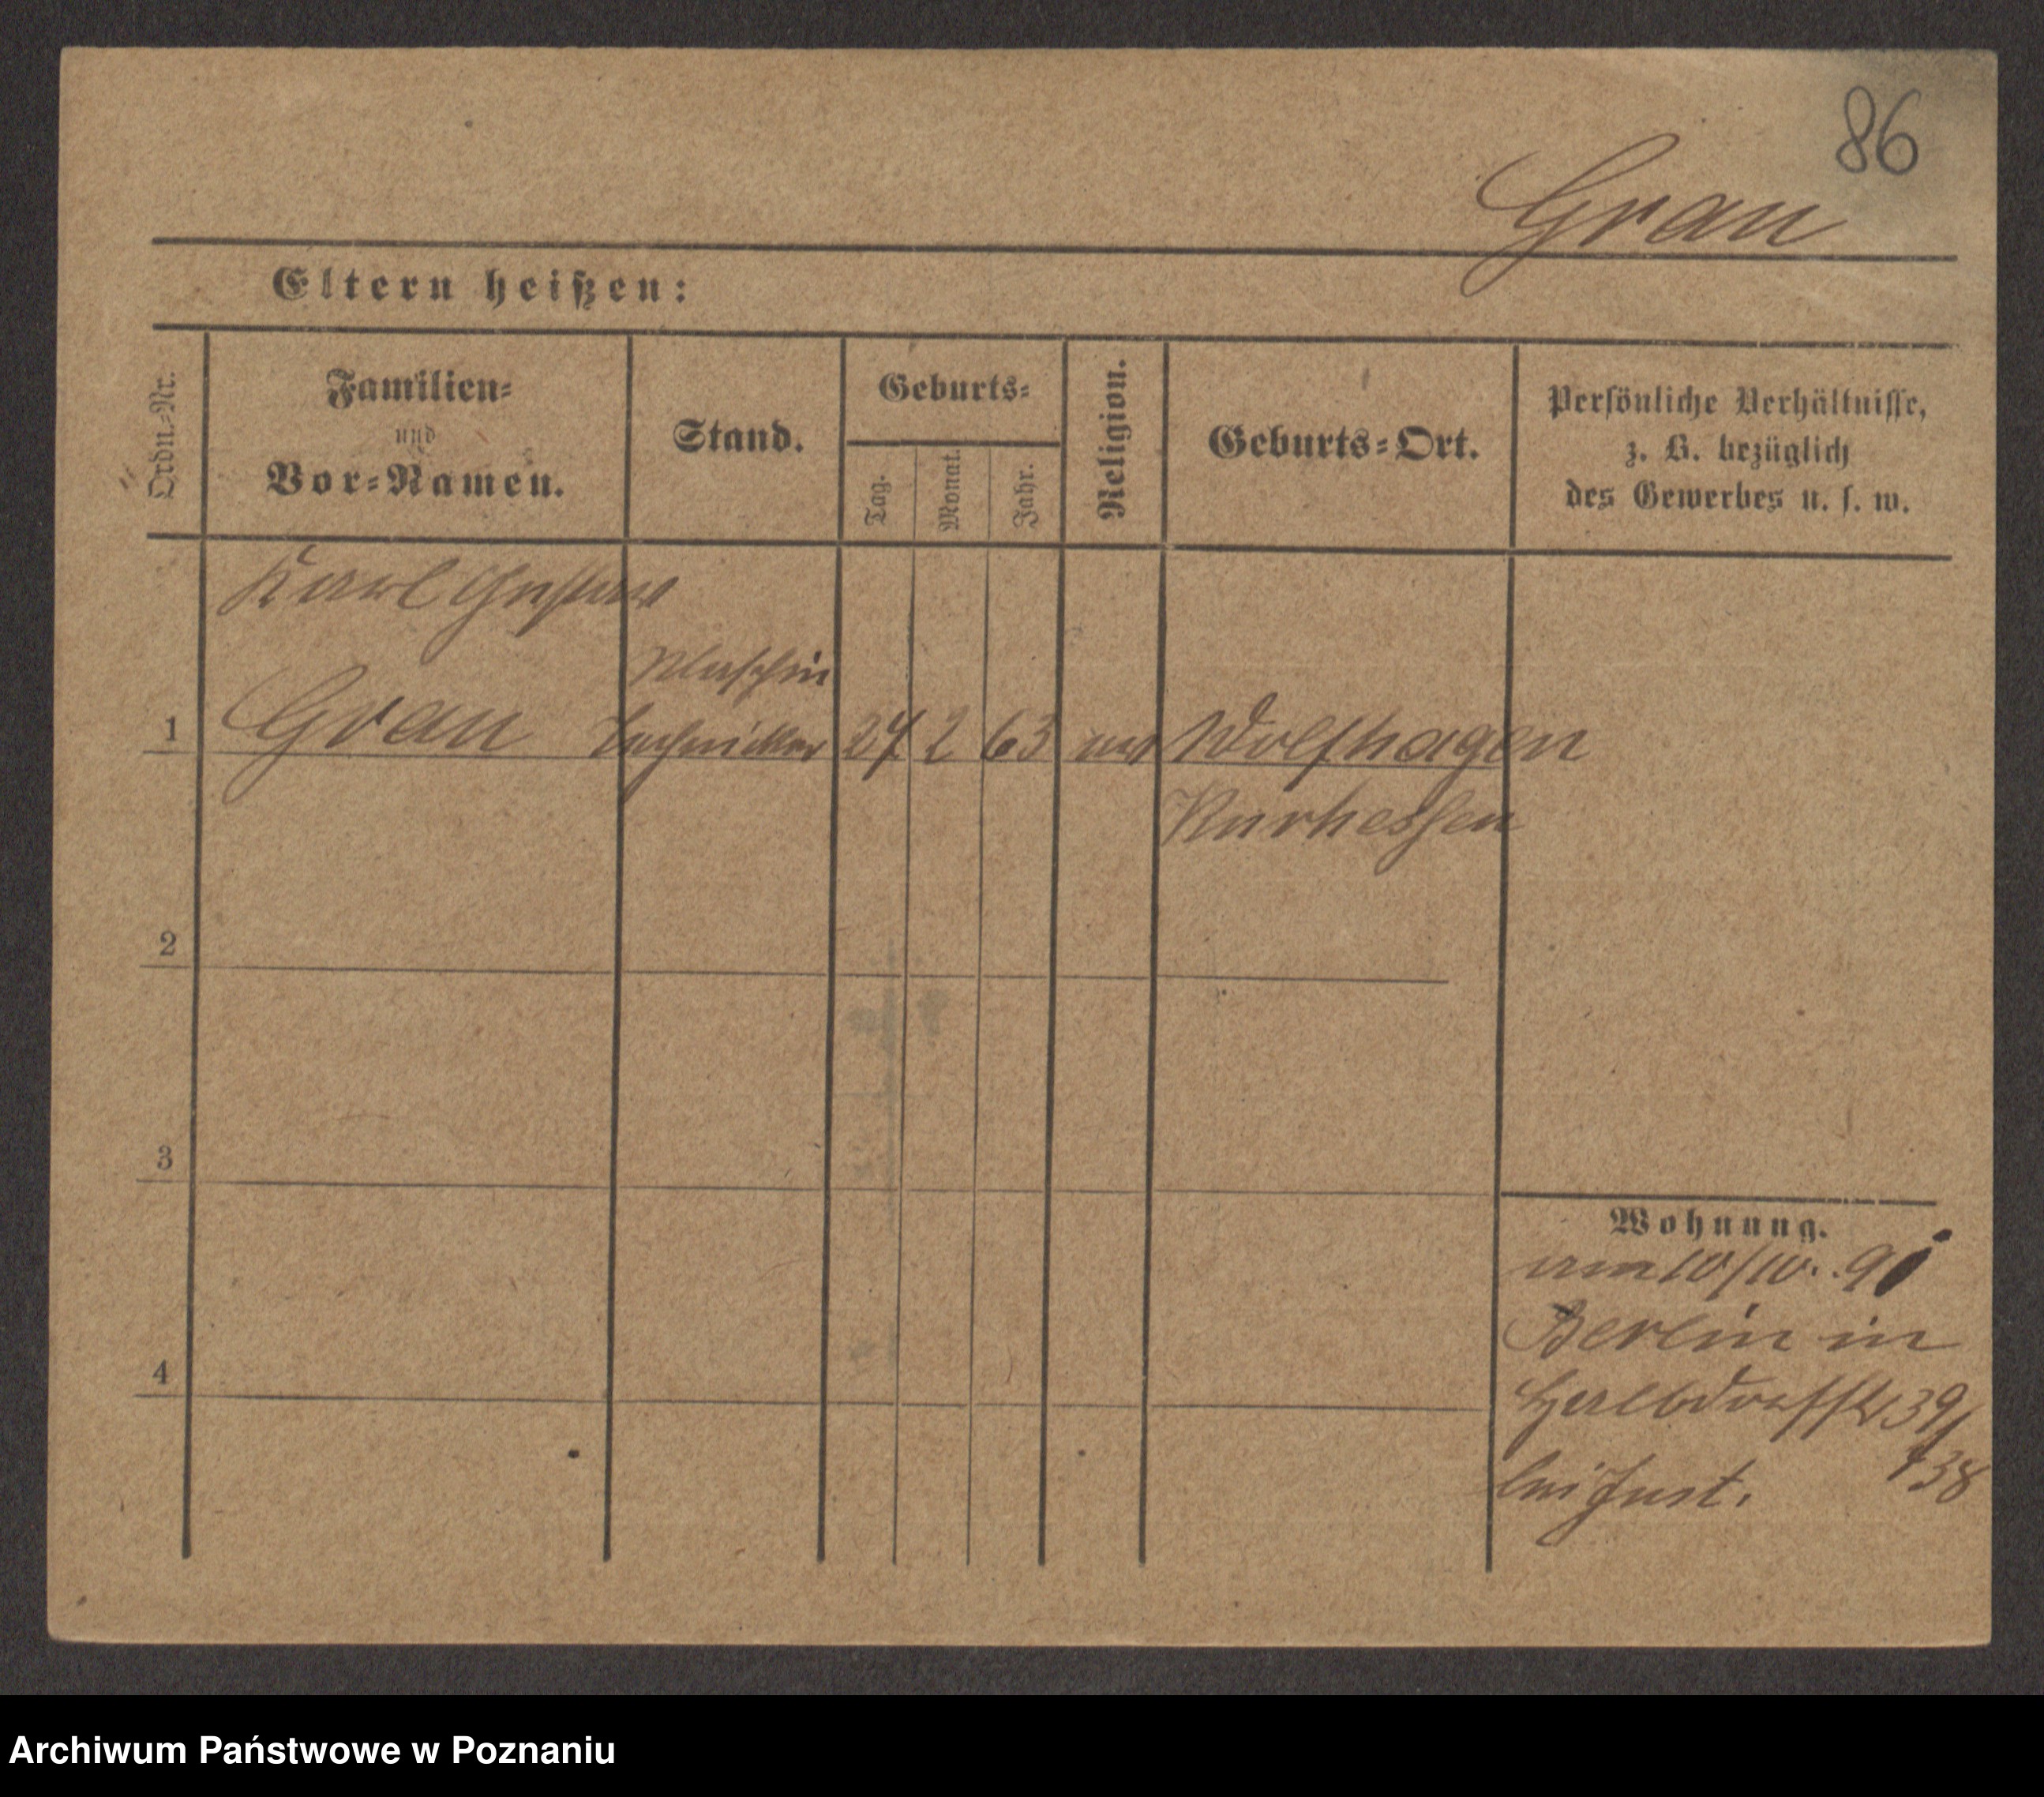 86
Grau
Eltern heißen:
Ordn.-Nr.
Familien-
und
Vor-Namen.
Stand.
Geburts-
Tag.
Monat.
Jahr.
Religion.
Geburts-Ort.
Persönliche Verhältnisse,
z. B. bezüglich
des Gewerbes u. s. w.
Karl Gustav
Maschin
1 Grau Techniker 24 2 63 Wolfhagen
Kurhessen
2
3
4
Wohnung.
10/10. 91
Berlin in
Halbdorfstr 39/
38
bei Just.
Archiwum Państwowe w Poznaniu